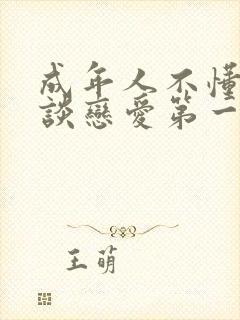 成年人不懂
談戀愛第一
王萌